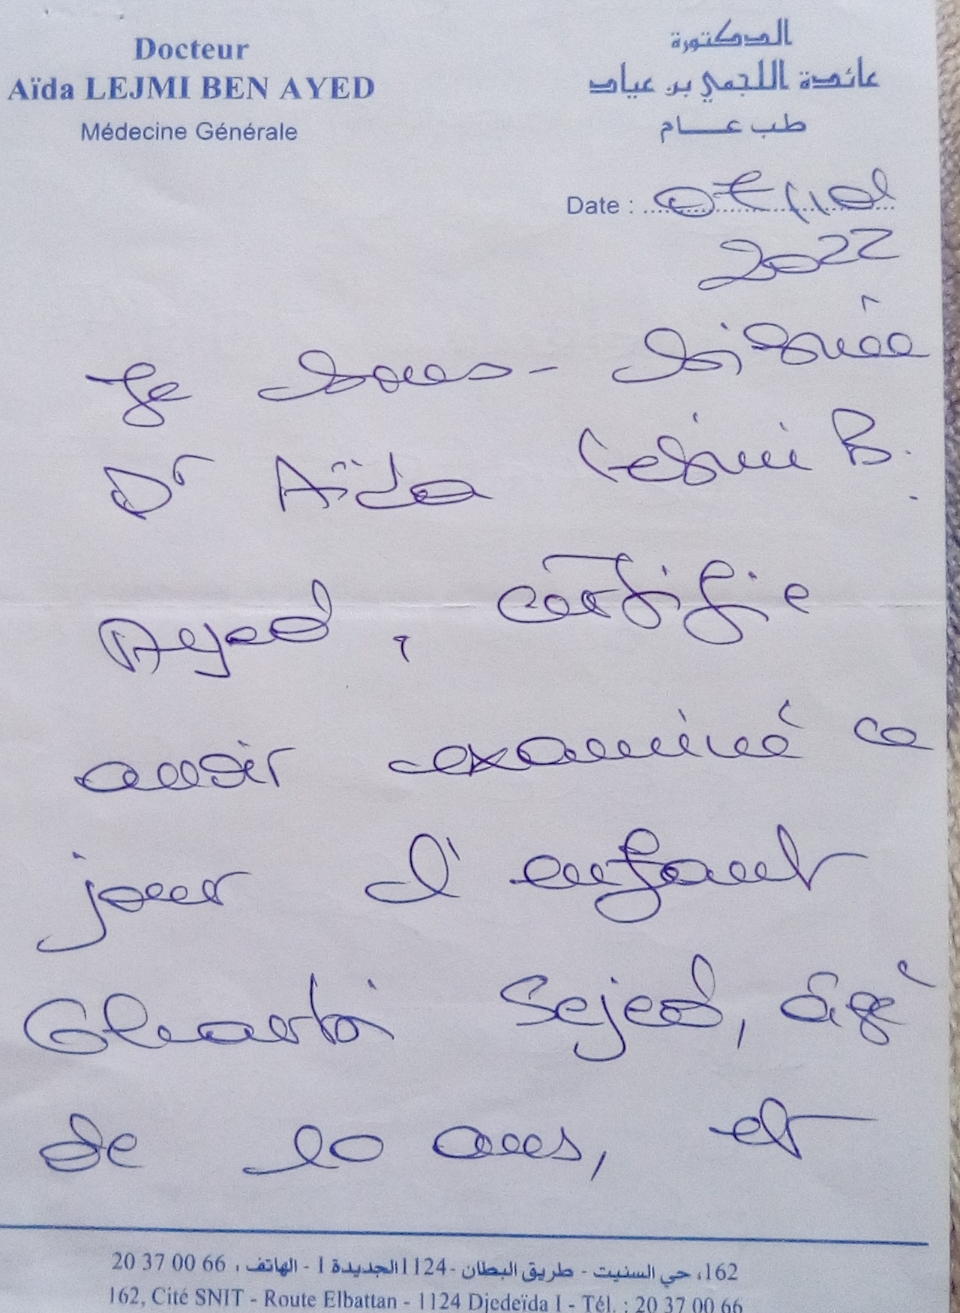 Docteur
Aïda LEJMI BEN AYED
Médecine Générale
الدكتورة
عائدة اللجمي بن عياد
طب عام
Date :
2022
Je sous-signée
Dr Aïda Lejmi B.
Ayed, certifie
avoir examiné ce
jour l'enfant
Gharbi Sejed, âgé
de 10 ans, et
162، حي السنيت - طريق البطان - 1124 الجديدة 1 - الهاتف : 66 00 37 20
162, Cité SNIT - Route Elbattan - 1124 Djedeïda I - Tél. : 20 37 00 66